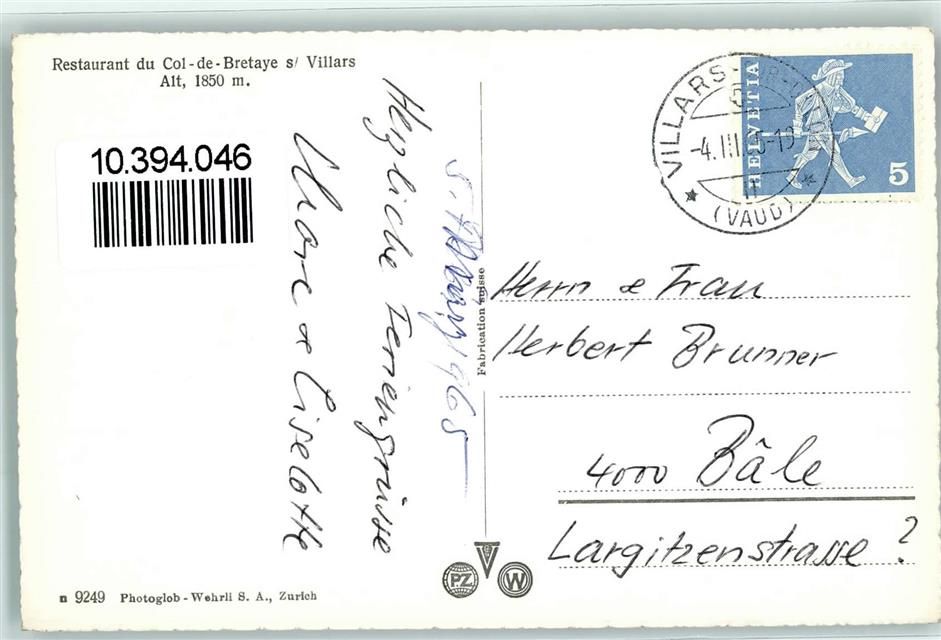 Restaurant du Col-de-Bretaye s/ Villars
Alt, 1850 m.
10.394.046
Herzliche Feriengrüsse
& Liselotte
1965
Fabrication suisse
VILLARS
-4.III
(VAUD)
HELVETIA
5
Herrn & Frau
Herbert Brunner
4000 Bâle
Largitzenstrasse ?
PZ
W
n 9249 Photoglob-Wehrli S. A., Zurich